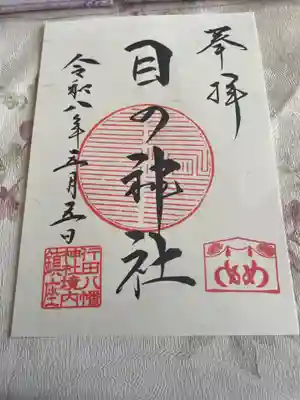 奉拝
目の神社
令和八年三月五日
行田八幡
神社境内
鎮座
め